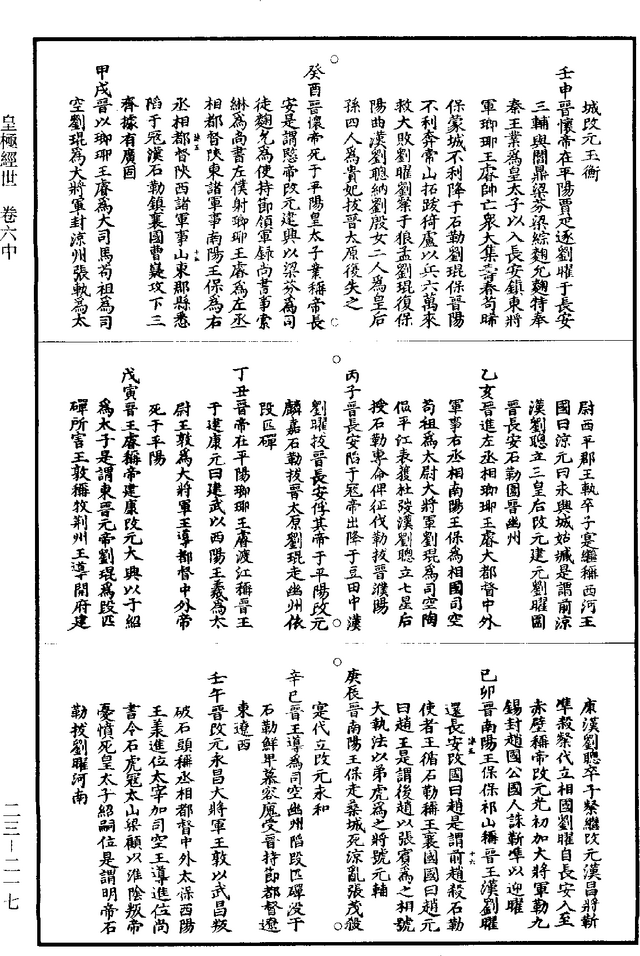 城改元玉衡
壬申晉懷帝在平陽賈疋逐劉曜于長安
三輔與閻鼎梁芬梁綜麴允麴特奉
秦王業為皇太子以入長安鎮東將
軍瑯琊王睿帥亡眾大集壽春苟晞
保蒙城不利降于石勒劉琨保晉陽
不利奔常山拓跋猗盧以兵六萬來
救大敗劉曜劉粲于狼孟劉琨復保
陽曲漢劉聰納劉殷女二人為皇后
孫四人為貴妃拔晉太原後失之
癸酉晉懷帝死于平陽皇太子業稱帝長
安是謂愍帝改元建興以梁芬為司
徒麴允為使持節領軍錄尚書事索
綝為尚書左僕射瑯琊王睿為左丞
相都督陝東諸軍事南陽王保為右
丞相都督陝西諸軍事山東郡縣悉
陷于寇漢石勒鎮襄國曹嶷攻下三
齊據有廣固
甲戌晉以瑯琊王睿為大司馬荀祖為司
空劉琨為大將軍封涼州張軌為太
尉西平郡王執卒子寔繼稱西河王
國曰涼元曰永興城姑臧是謂前涼
漢劉聰立三皇后改元建元劉曜圍
晉長安石勒圍晉幽州
乙亥晉進左丞相瑯琊王睿大都督中外
軍事右丞相南陽王保為相國司空
荀祖為太尉大將軍劉琨為司空陶
侃平江表獲杜弢漢劉聰立七星后
授石勒專命俾征伐勒拔晉濮陽
丙子晉長安陷于寇帝出降于豆田中漢
劉曜拔晉長安俘其帝于平陽改元
麟嘉石勒拔晉太原劉琨走幽州依
段匹磾
丁丑晉帝在平陽瑯琊王睿渡江稱晉王
于建康元曰建武以西陽王羕為太
尉王敦為大將軍王導都督中外帝
死于平陽
戊寅晉王睿稱帝建康改元大興以子紹
為太子是謂東晉元帝劉琨為段匹
磾所害王敦稱牧荊州王導開府建
康漢劉聰卒子粲繼改元漢昌將靳
準殺粲代立相國劉曜自長安入至
赤壁稱帝改元光初加大將軍勒九
錫封趙國公國人誅靳準以迎曜
己卯晉南陽王保保祁山稱晉王漢劉曜
還長安改國曰趙是謂前趙殺石勒
使者王循石勒稱王襄國國曰趙元
曰趙王是謂後趙以張賓為之相號
大執法以弟虎為之將號元輔
庚辰晉南陽王保走桑城死涼亂張茂殺
寔代立改元永和
辛巳晉王導為司空幽州陷段匹磾沒于
石勒鮮卑慕容廆受晉持節都督遼
東遼西
壬午晉改元永昌大將軍王敦以武昌叛
破石頭稱丞相都督中外太保西陽
王羕進位太宰加司空王導進位尚
書令石虎寇太山梁顧以淮陰叛帝
憂憤死皇太子紹嗣位是謂明帝石
勒拔劉曜河南
皇極經世 卷六中
二三－二一七